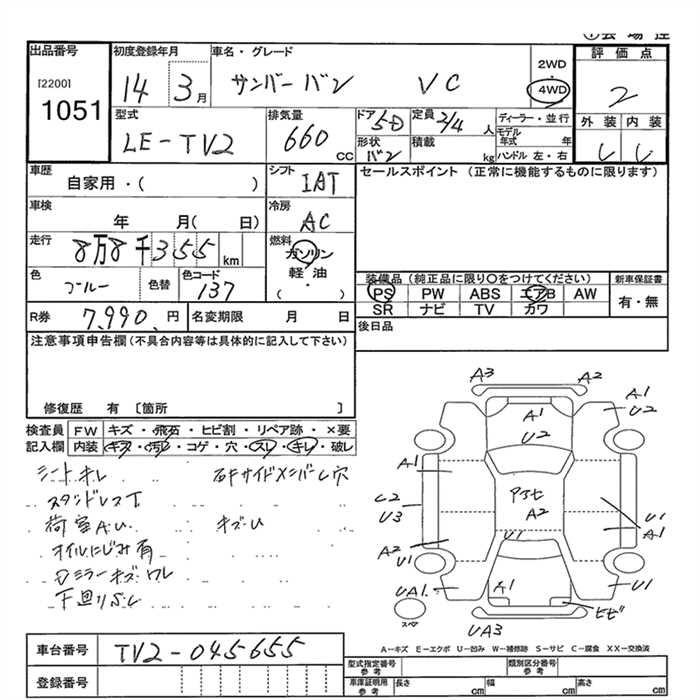 出品番号
[2200]
1051
初度登録年月
14 3月
車名・グレード
サンバーバン VC
2WD
4WD
評価点
2
外装 内装
型式
LE-TV2
排気量
660 cc
ドア 5D
形状 バン
定員 2/4 人
積載 kg
ディーラー・並行
モデル年式 年
ハンドル 左・右
車歴
自家用・( )
シフト
IAT
セールスポイント (正常に機能するものに限ります)
車検
年 月( 日)
冷房
AC
走行
8万8千355 km
燃料
ガソリン
軽油
( ・ )
色
ブルー
色替
色コード
137
装備品 (純正品に限り○をつけてください)
新車保証書
PS PW ABS エアB AW
有・無
SR ナビ TV カワ
R券 7,990 円
名変期限 月 日
後日品
注意事項申告欄(不具合内容等は具体的に記入して下さい)
修復歴 有 [箇所 ]
検査員記入欄
FW キズ・飛石・ヒビ割・リペア跡・×要
内装 キズ・汚レ・コゲ・穴・スレ・キレ・破レ
シートキレ
荷室A.U.
キズ・U
オイルにじみ有
ミラーキズ・ワレ
下廻りS.C
A3
A1
U2
A1
U2
A1
C2
U3
A2
A2
U1
U1
U1
A1
UA1
A1
U1
UA3
ヒビ
スペア
A-キズ E-エクボ U-凹み W-補修跡 S-サビ C-腐食 XX-交換済
車台番号
TV2-045655
登録番号
型式指定番号
参考
類別区分番号
参考
車庫証明用
参考
長さ cm
幅 cm
高さ cm